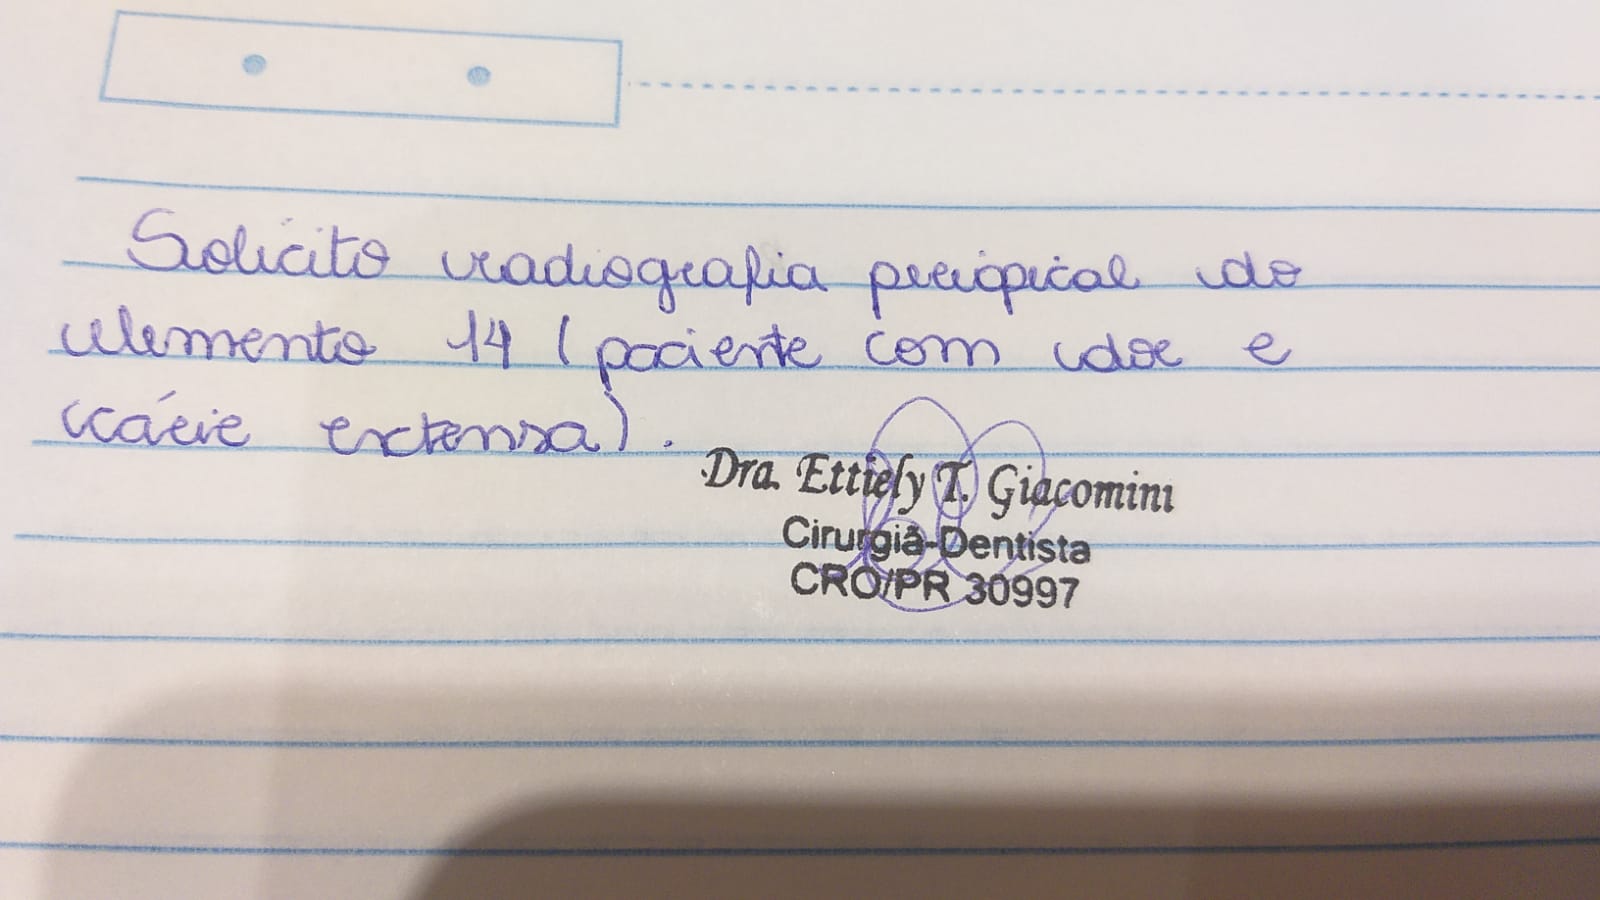 Solicito radiografia periapical do
elemento 14 (paciente com dor e
cárie extensa).
Dra. Ettiely T. Giacomini
Cirurgiã-Dentista
CRO/PR 30997